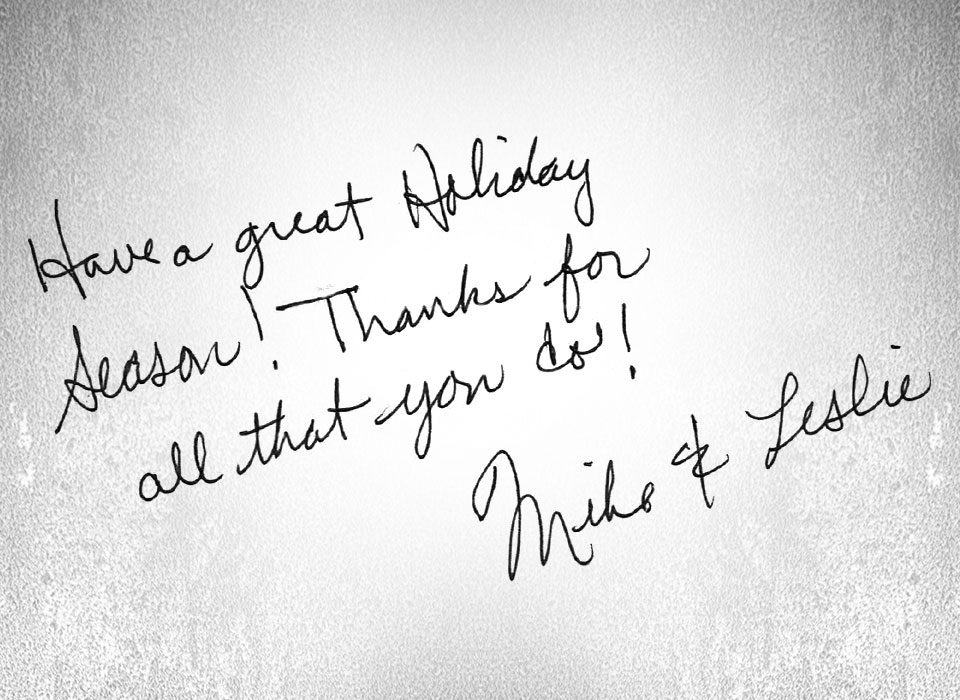 Have a great Holiday
Season! Thanks for
all that you do!
Mike & Leslie